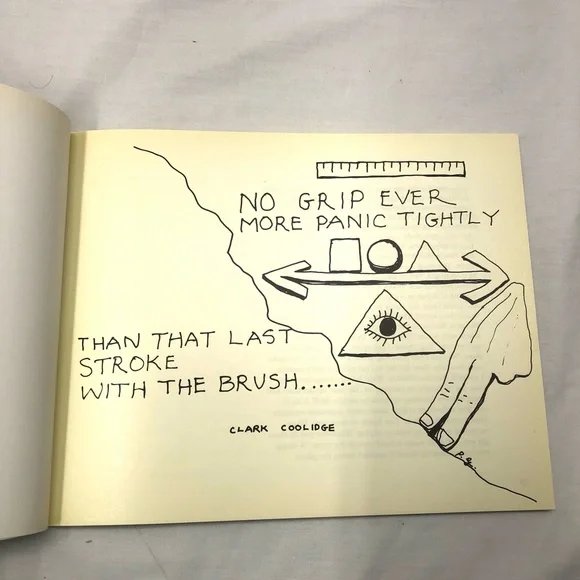 NO GRIP EVER
MORE PANIC TIGHTLY
THAN THAT LAST
STROKE
WITH THE BRUSH.......
CLARK COOLIDGE